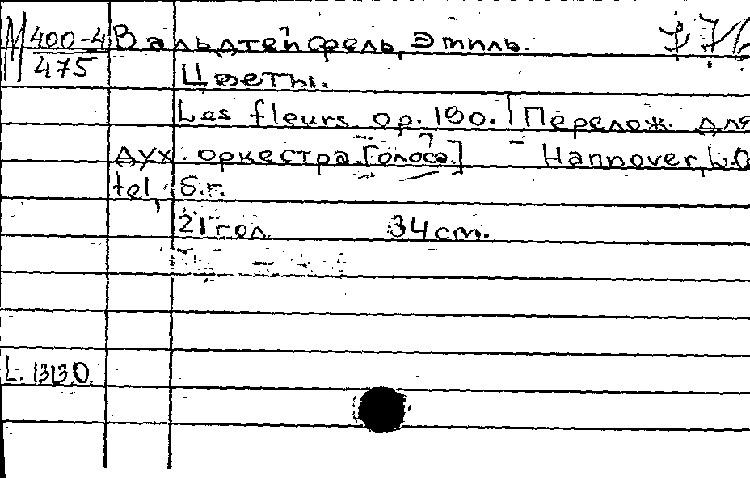 М 400-4 Вальдтейфель, Этиль.
475 Цветы.
Les fleurs op. 190. Перелож. для
дух. оркестра [голоса] - Hannover, L.O
tel, б.г.
21 гол 34 cm.
L. 1313.O.